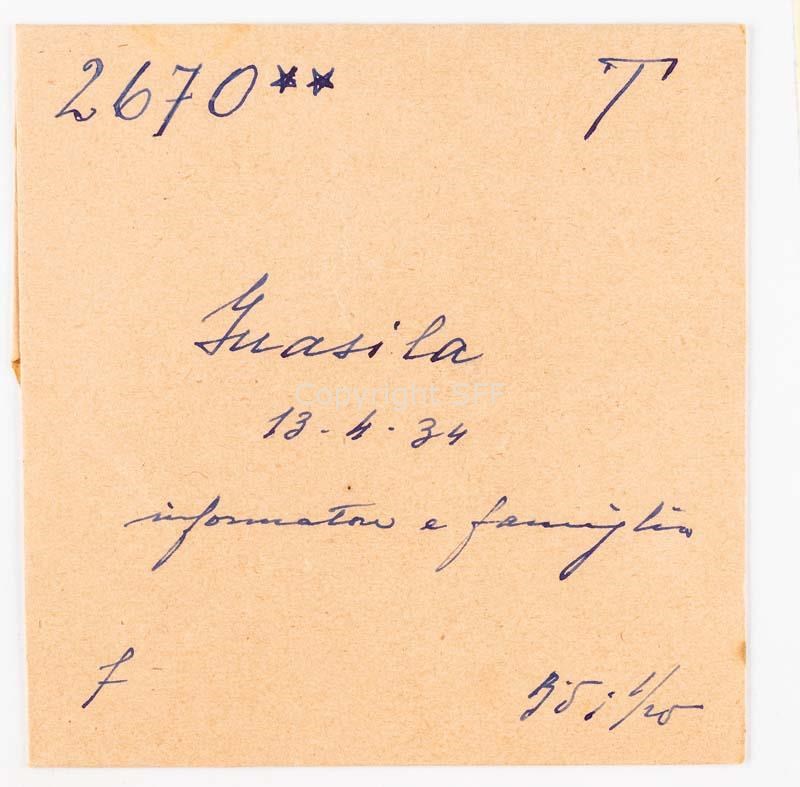 2670** T
Guasila
Copyright SFF
13-4-34
informatore e famiglia
f